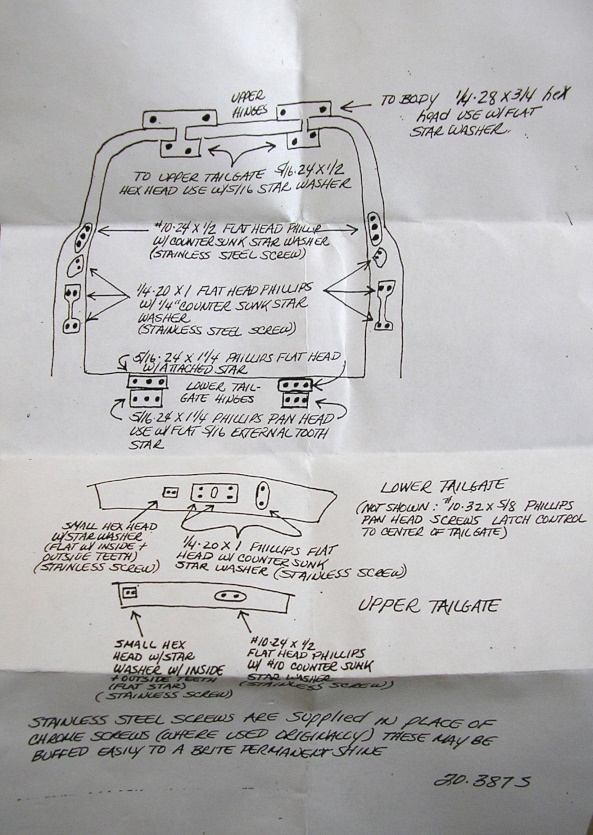 UPPER
HINGES
TO BODY 1/4·28 X 3/4 hex
head USE W/FLAT
STAR WASHER.
TO UPPER TAILGATE 5/16·24 X 1/2
HEX HEAD USE W/5/16 STAR WASHER
#10·24 X 1/2 FLAT HEAD PHILLIP
W/COUNTER SUNK STAR WASHER
(STAINLESS STEEL SCREW)
1/4·20 X 1 FLAT HEAD PHILLIPS
W/ 1/4" COUNTER SUNK STAR
WASHER
(STAINLESS STEEL SCREW)
5/16·24 X 1 1/4 PHILLIPS FLAT HEAD
W/ATTACHED STAR
LOWER TAIL-
GATE HINGES
5/16·24 X 1 1/4 PHILLIPS PAN HEAD
USE W/ FLAT 5/16 EXTERNAL TOOTH
STAR
LOWER TAILGATE
(NOT SHOWN: #10·32 X 5/8 PHILLIPS
PAN HEAD SCREWS LATCH CONTROL
TO CENTER OF TAILGATE)
SMALL HEX HEAD
W/STAR WASHER
(FLAT W/ INSIDE +
OUTSIDE TEETH)
(STAINLESS SCREW)
1/4·20 X 1 PHILLIPS FLAT
HEAD W/ COUNTER SUNK
STAR WASHER (STAINLESS SCREW)
UPPER TAILGATE
SMALL HEX
HEAD W/STAR
WASHER W/ INSIDE
+ OUTSIDE TEETH
(FLAT STAR)
(STAINLESS SCREW)
#10·24 X 1/2
FLAT HEAD PHILLIPS
W/ #10 COUNTER SUNK
STAR WASHER
(STAINLESS SCREW)
STAINLESS STEEL SCREWS ARE SUPPLIED IN PLACE OF
CHROME SCREWS (WHERE USED ORIGINALLY) THESE MAY BE
BUFFED EASILY TO A BRITE PERMANENT SHINE
20·387 S